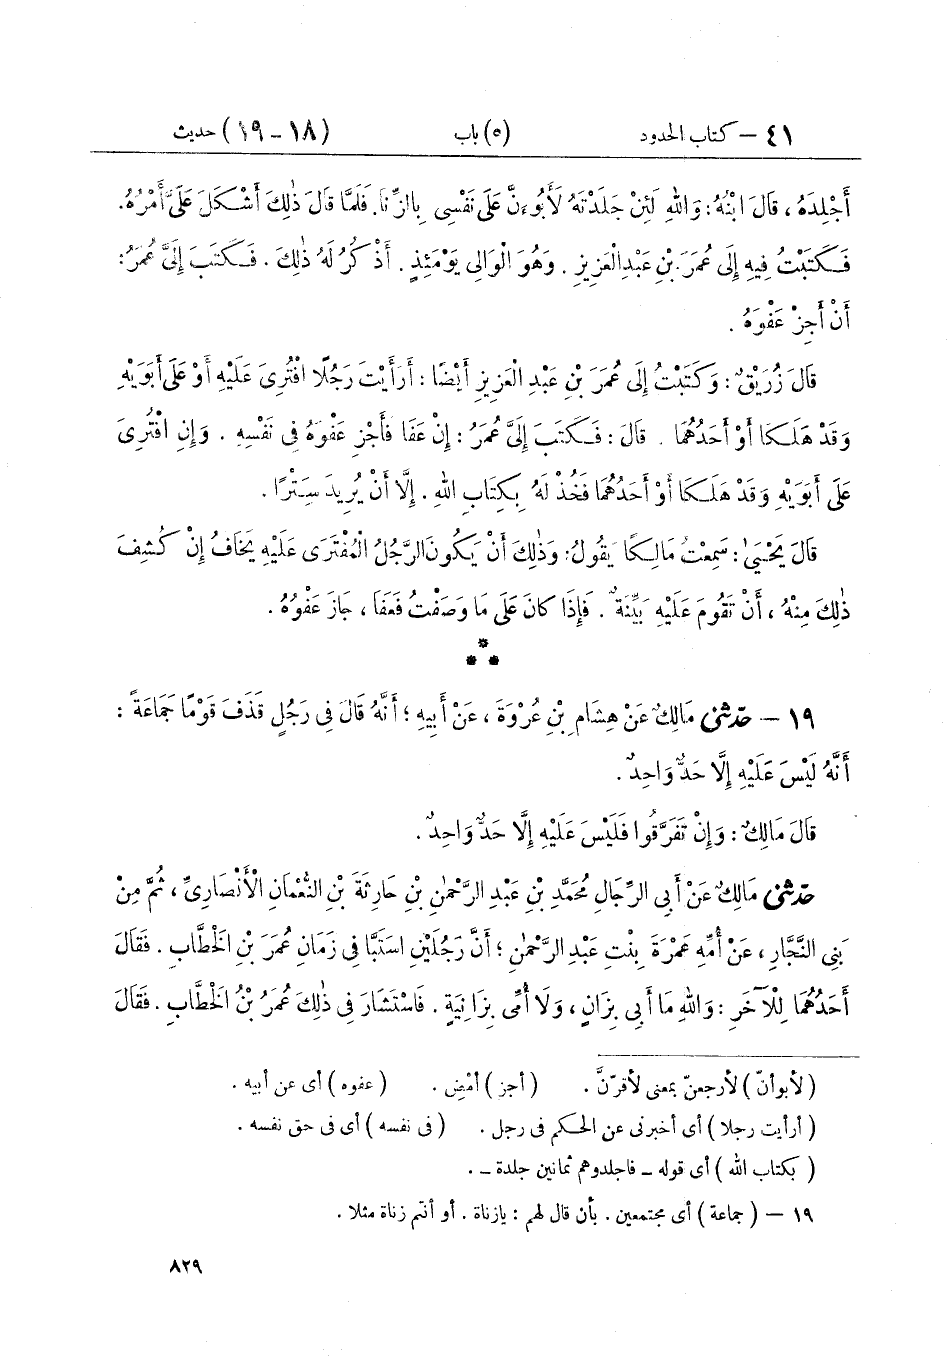 ٤١ – كتاب الحدود (٥) باب (١٨ – ١٩) حديث
أَجْلِدَهُ ، قَالَ ابْنُهُ : وَاللهِ لَئِنْ جَلَدْتَهُ لَأَبُوءَنَّ عَلَى نَفْسِى بِالزِّنَا. فَلَمَّا قَالَ ذٰلِكَ أَشْكَلَ عَلَىَّ أَمْرُهُ.
فَكَتَبْتُ فِيهِ إِلَى عُمَرَ بْنِ عَبْدِ الْعَزِيزِ . وَهُوَ الْوَالِى يَوْمَئِذٍ . أَذْكُرُ لَهُ ذٰلِكَ . فَكَتَبَ إِلَىَّ عُمَرُ :
أَنْ أَجِزْ عَفْوَهُ .
قَالَ زُرَيْقٌ : وَكَتَبْتُ إِلَى عُمَرَ بْنِ عَبْدِ الْعَزِيزِ أَيْضًا : أَرَأَيْتَ رَجُلًا افْتُرِىَ عَلَيْهِ أَوْ عَلَى أَبَوَيْهِ
وَقَدْ هَلَكَا أَوْ أَحَدُهُمَا . قَالَ : فَكَتَبَ إِلَىَّ عُمَرُ : إِنْ عَفَا فَأَجِزْ عَفْوَهُ فِى نَفْسِهِ . وَإِنِ افْتُرِىَ
عَلَى أَبَوَيْهِ وَقَدْ هَلَكَا أَوْ أَحَدُهُمَا فَخُذْ لَهُ بِكِتَابِ اللهِ . إِلَّا أَنْ يُرِيدَ سِتْرًا .
قَالَ يَحْيَىٰ : سَمِعْتُ مَالِكًا يَقُولُ : وَذٰلِكَ أَنْ يَكُونَ الرَّجُلُ الْمُفْتَرَى عَلَيْهِ يَخَافُ إِنْ كُشِفَ
ذٰلِكَ مِنْهُ ، أَنْ تَقُومَ عَلَيْهِ بَيِّنَةٌ . فَإِذَا كَانَ عَلَى مَا وَصَفْتُ فَعَفَا ، جَازَ عَفْوُهُ .
* * *
١٩ – حدّثنى مَالِكٌ عَنْ هِشَامِ بْنِ عُرْوَةَ ، عَنْ أَبِيهِ ؛ أَنَّهُ قَالَ فِى رَجُلٍ قَذَفَ قَوْمًا جَمَاعَةً :
أَنَّهُ لَيْسَ عَلَيْهِ إِلَّا حَدٌّ وَاحِدٌ .
قَالَ مَالِكٌ : وَإِنْ تَفَرَّقُوا فَلَيْسَ عَلَيْهِ إِلَّا حَدٌّ وَاحِدٌ .
حدّثنى مَالِكٌ عَنْ أَبِى الرِّجَالِ مُحَمَّدِ بْنِ عَبْدِ الرَّحْمٰنِ بْنِ حَارِثَةَ بْنِ النُّعْمَانِ الْأَنْصَارِىِّ ، ثُمَّ مِنْ
بَنِى النَّجَّارِ ، عَنْ أُمِّهِ عَمْرَةَ بِنْتِ عَبْدِ الرَّحْمٰنِ ؛ أَنَّ رَجُلَيْنِ اسْتَبَّا فِى زَمَانِ عُمَرَ بْنِ الْخَطَّابِ . فَقَالَ
أَحَدُهُمَا لِلْآخَرِ : وَاللهِ مَا أَبِى بِزَانٍ ، وَلَا أُمِّى بِزَانِيَةٍ . فَاسْتَشَارَ فِى ذٰلِكَ عُمَرُ بْنُ الْخَطَّابِ . فَقَالَ
( لأبوأنّ ) لأرجعنّ بمعنى لأقرّنَّ . ( أجز ) أمْضِ . ( عفوه ) أى عن أبيه .
( أرأيت رجلا ) أى أخبرنى عن الحكم فى رجل . ( فى نفسه ) أى فى حق نفسه .
( بكتاب الله ) أى قوله – فاجلدوهم ثمانين جلدة – .
١٩ – ( جماعة ) أى مجتمعين . بأن قال لهم : يازناة . أو أنتم زناة مثلا .
٨٢٩